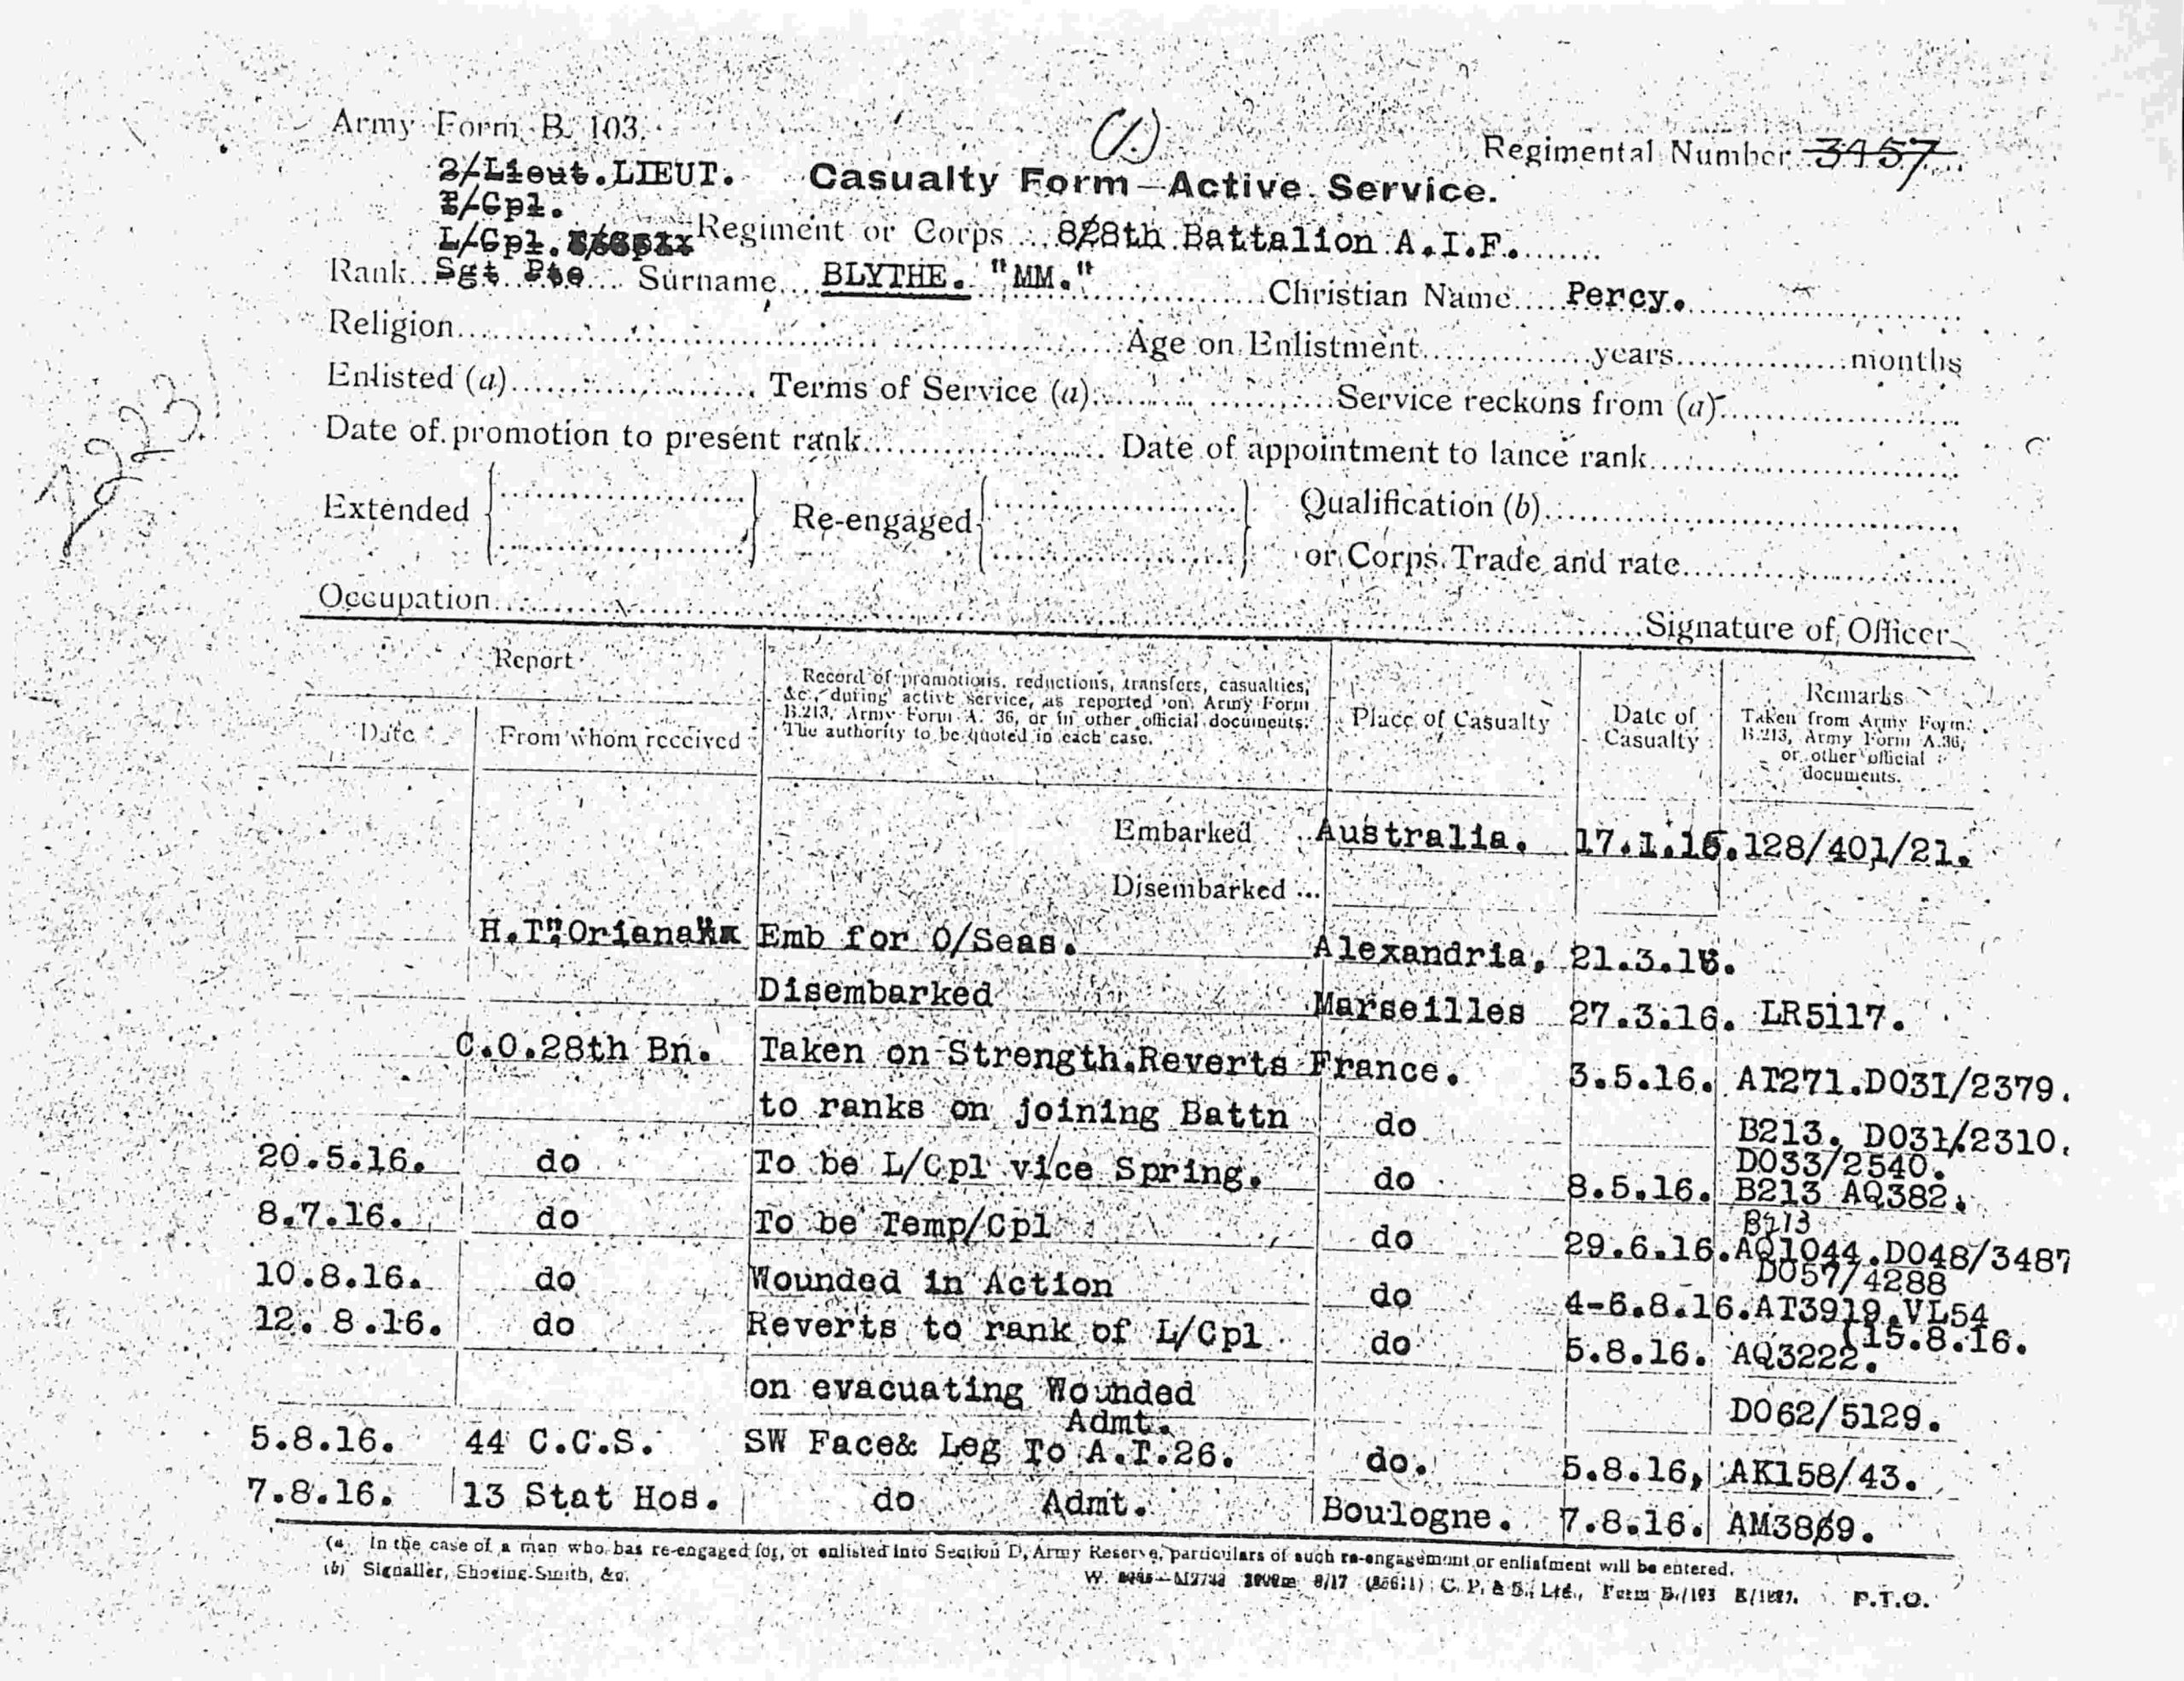 Army Form B. 103.
(1.)
Regimental Number 3457
2/Lieut. LIEUT.
Casualty Form—Active Service.
T/Cpl.
L/Cpl.
Regiment or Corps 28th Battalion A.I.F.
Rank Sgt Pte Surname BLYTHE. "MM." Christian Name Percy.
Religion Age on Enlistment years months
Enlisted (a) Terms of Service (a) Service reckons from (a)
Date of promotion to present rank Date of appointment to lance rank
Extended Re-engaged Qualification (b)
or Corps Trade and rate
Occupation
Signature of Officer
Report
Date
From whom received
Record of promotions, reductions, transfers, casualties,
&c., during active service, as reported on Army Form
B.213, Army Form A. 36, or in other official documents.
The authority to be quoted in each case.
Place of Casualty
Date of
Casualty
Remarks
Taken from Army Form
B.213, Army Form A.36,
or other official
documents.
Embarked Australia. 17.1.16. 128/401/21.
Disembarked ...
H.T."Oriana" Emb for O/Seas. Alexandria, 21.3.16.
Disembarked Marseilles 27.3.16. LR5117.
C.O.28th Bn. Taken on Strength.Reverts France. 3.5.16. AT271.DO31/2379.
to ranks on joining Battn do B213. DO31/2310.
DO33/2540.
20.5.16. do To be L/Cpl vice Spring. do 8.5.16. B213 AQ382.
B213
8.7.16. do To be Temp/Cpl do 29.6.16. AQ1044.DO48/3487
DO57/4288
10.8.16. do Wounded in Action do 4-6.8.16. AT3919.VL54
(15.8.16.
12. 8.16. do Reverts to rank of L/Cpl do 5.8.16. AQ3222.
on evacuating Wounded DO62/5129.
Admt.
5.8.16. 44 C.C.S. SW Face& Leg To A.T.26. do. 5.8.16, AK158/43.
7.8.16. 13 Stat Hos. do Admt. Boulogne. 7.8.16. AM3869.
(a) In the case of a man who has re-engaged for, or enlisted into Section D, Army Reserve, particulars of such re-engagement or enlistment will be entered.
(b) Signaller, Shoeing-Smith, &c.
8/17 C. P. & S., Ltd., Form B./103
P.T.O.